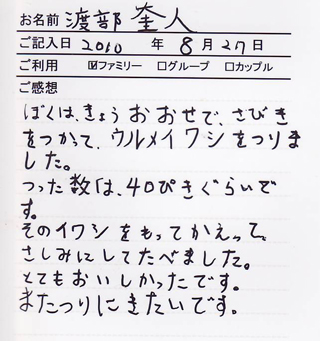 お名前 渡部 奎人
ご記入日 2010 年 8月27日
ご利用 ☑ファミリー □グループ □カップル
ご感想
ぼくは、きょう おおせで、さびき
をつかって、ウルメイワシをつりま
した。
つった数は、40ぴきぐらいで
す。
そのイワシをもってかえって、
さしみにしてたべました。
とてもおいしかったです。
またつりにきたいです。